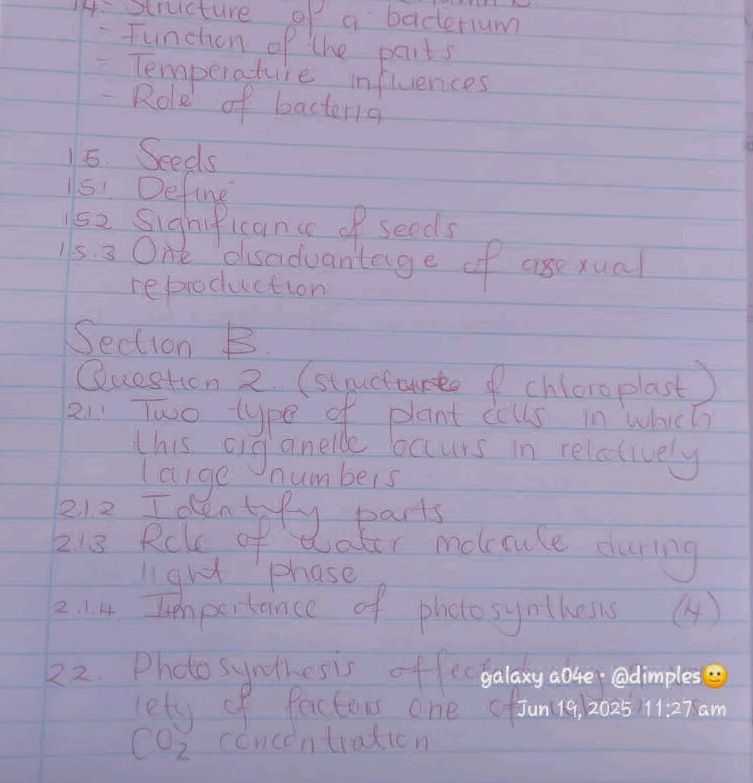 14- Structure of a bacterium
- Function of the parts
- Temperature influences
- Role of bacteria
15. Seeds
151 Define
152 Significance of seeds
15.3 One disadvantage of asexual
reproduction
Section B.
Question 2. (structure of chloroplast)
2.1.1 Two type of plant cells in which
this organelle occurs in relatively
large numbers
212 Identify parts
213 Role of water molecule during
light phase
2.1.4. Importance of photosynthesis (4)
22. Photosynthesis
iety of factors one of
CO2 concentration
galaxy a04e · @dimples🙂
Jun 19, 2025 11:27 am